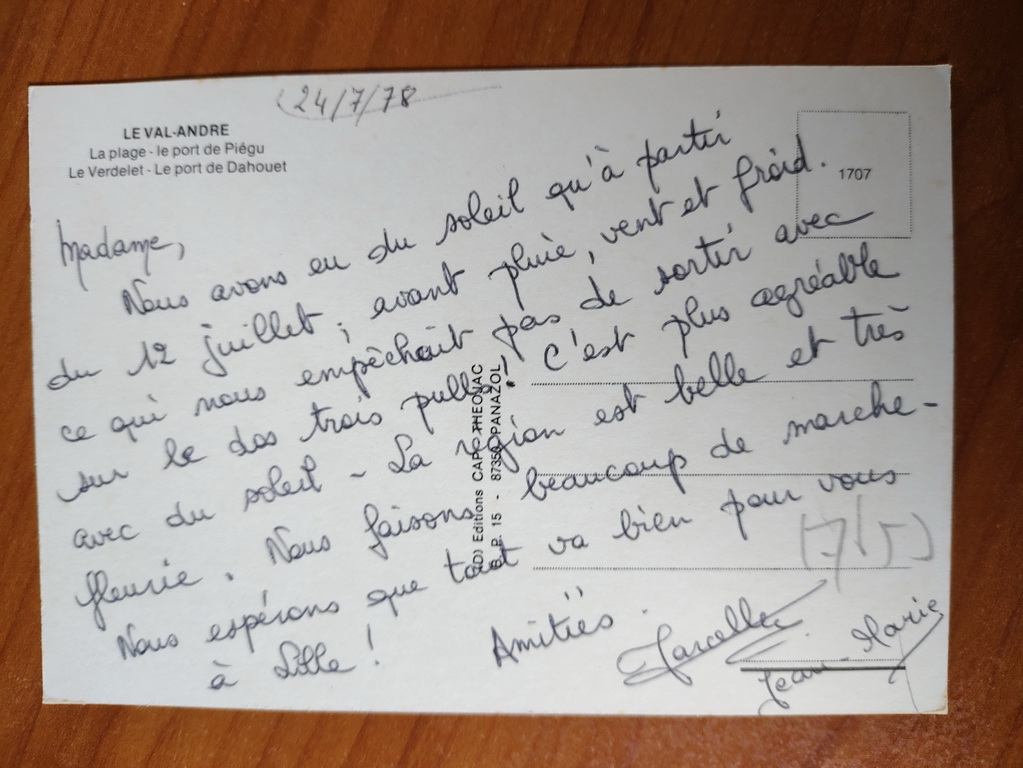 24/7/78
LE VAL-ANDRE
La plage - le port de Piégu
Le Verdelet - Le port de Dahouet
1707
Madame,
Nous avons eu du soleil qu'à partir
du 12 juillet ; avant pluie, vent et froid.
ce qui nous empêchait pas de sortir avec
sur le dos trois pulls ! C'est plus agréable
avec du soleil - La région est belle et très
fleurie. Nous faisons beaucoup de marche -
Nous espérons que tout va bien pour vous
à Lille !
Amitiés.
Marcelle
Jean-Marie
(7/5)
Editions CAP-THEOJAC
P. 15 - 87350 PANAZOL